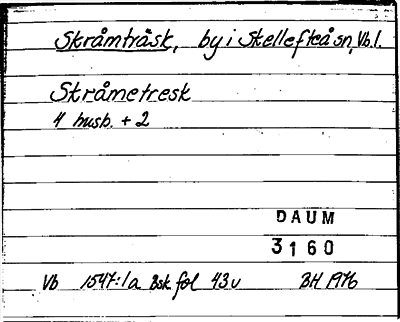 Skråmträsk, by i Skellefteå sn, Vb.l.
Skråmetresk
4 husb. + 2
DAUM
3160
Vb 1547:1a Bsk fol 43v BH 1976